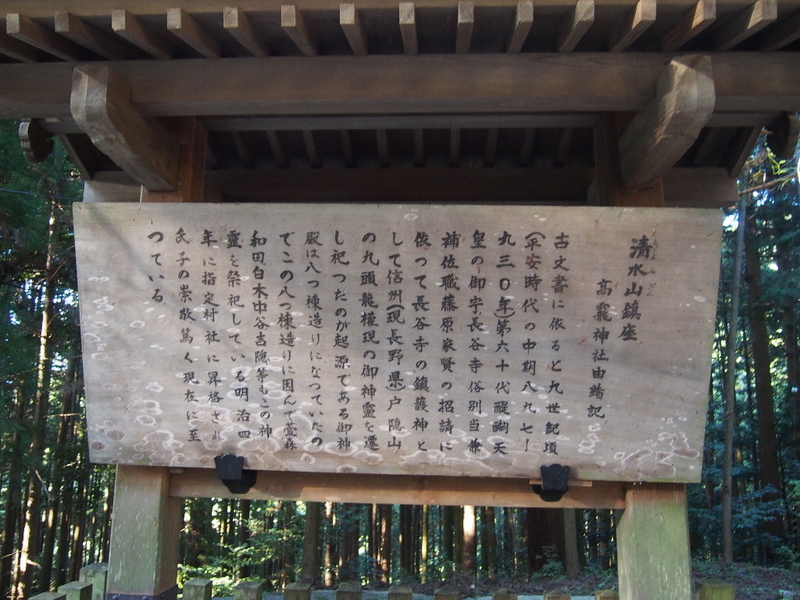 清水山鎮座
高龗神社由緒記
古文書に依ると九世紀頃
(平安時代の中期八九七ー
九三〇年)第六十代醍醐天
皇の御宇長谷寺俗別当兼
補佐職藤原家賢の招請に
依って長谷寺の鎮護神と
して信州(現長野県)戸隠山
の九頭龍権現の御神霊を遷
し祀つたのが起源である御神
殿は八つ棟造りになつていたの
でこの八つ棟造りに因んで萱森
和田白木中谷吉隠等もこの神
霊を祭祀している明治四
年に指定村社に昇格され
氏子の崇敬篤く現在に至
つている